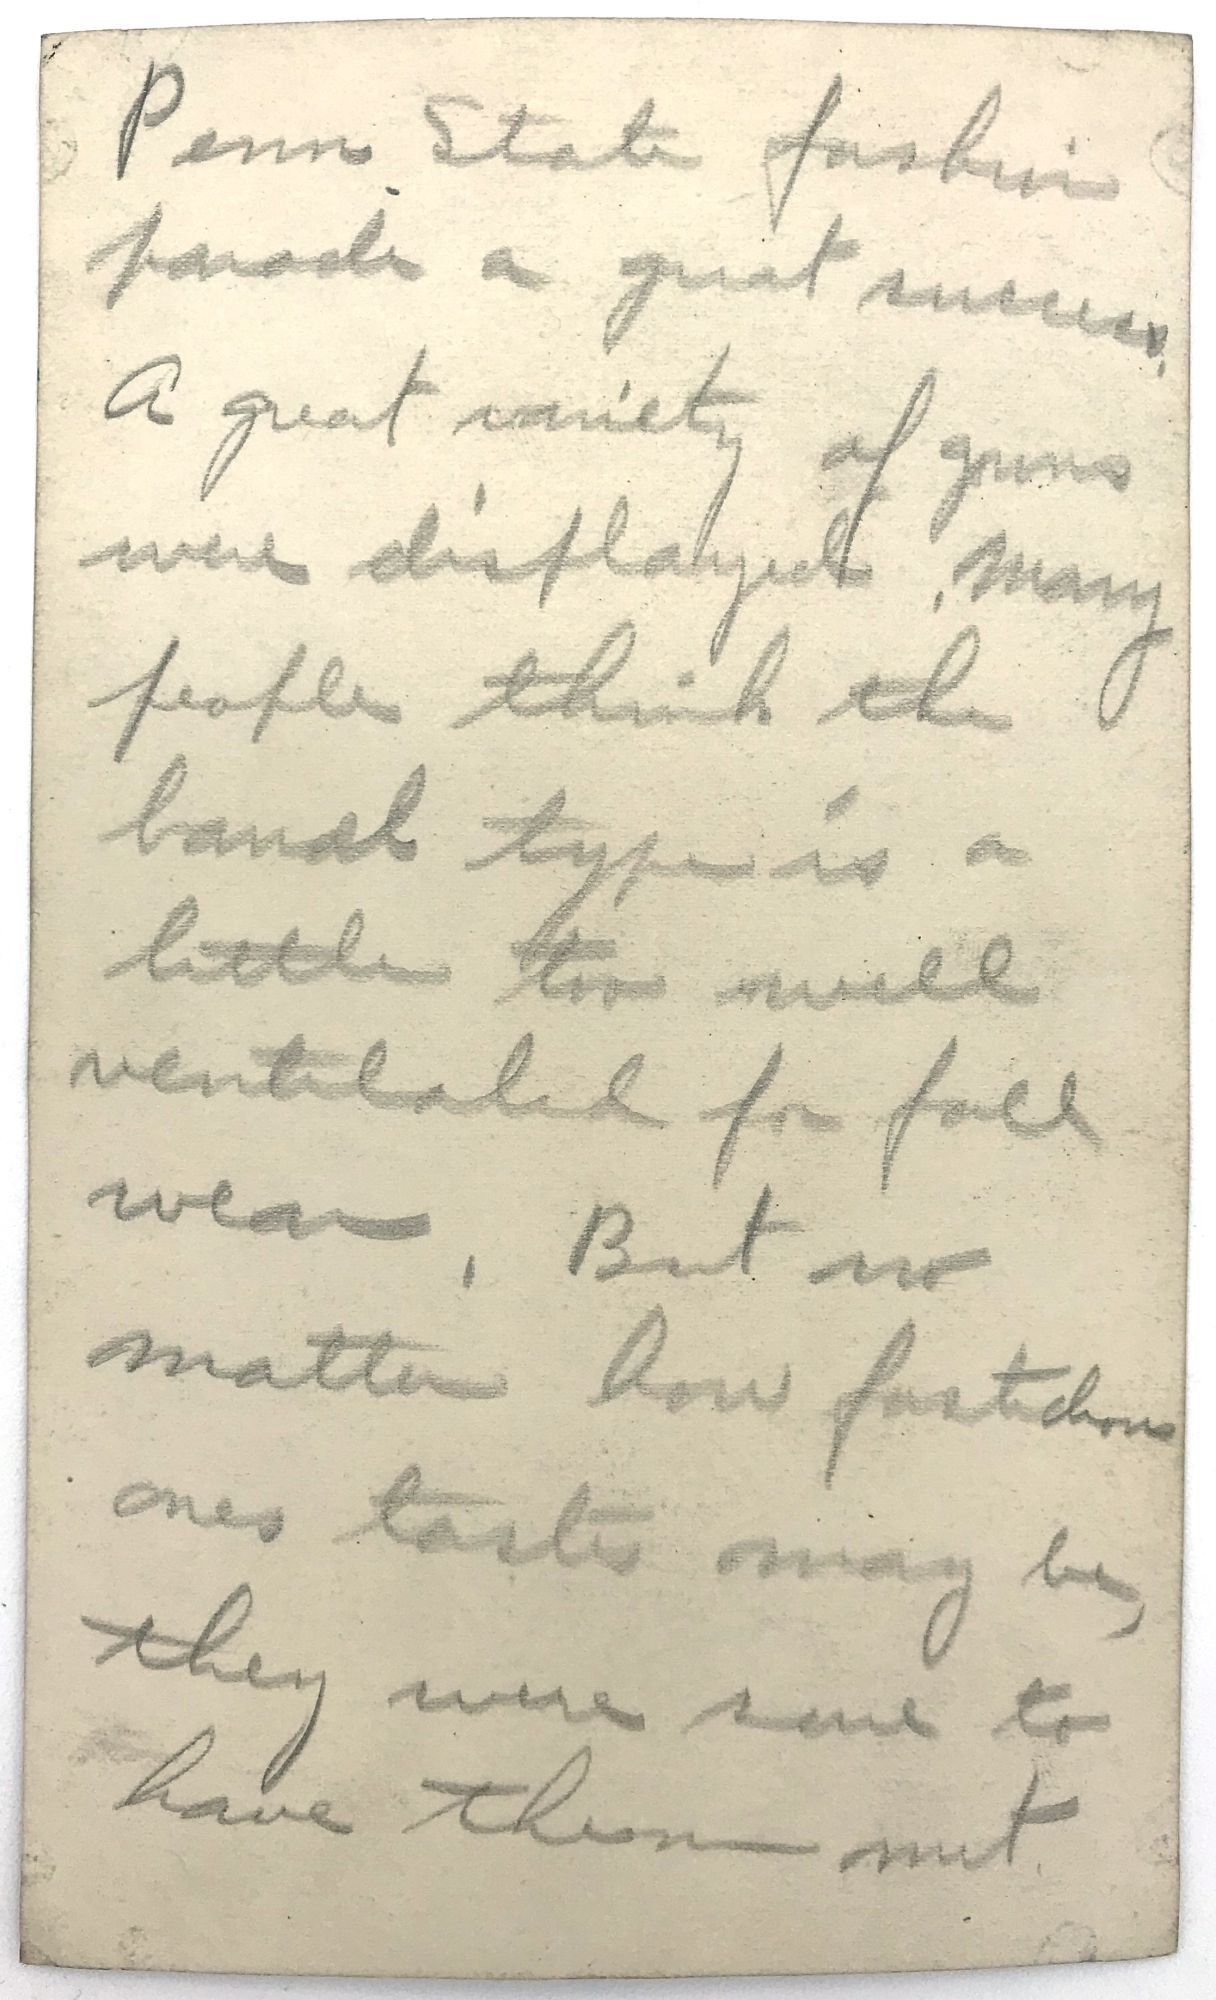 Penn State fashion
parade a great success.
A great variety of gowns
were displayed. Many
people think the
barrel type is a
little too well
ventilated for fall
wear. But no
matter how fastidious
ones tastes may be,
they were sure to
have them met.